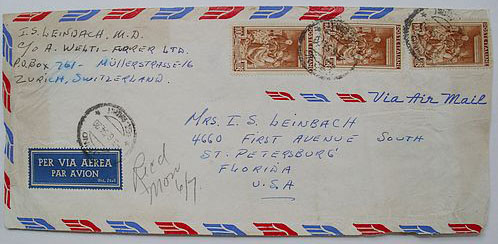 I.S. LEINBACH, M.D.
C/O A. WELTI-FURRER LTD.
P.O.BOX 761- MÜLLERSTRASSE-16
ZURICH, SWITZERLAND
Via Air Mail
MRS. I. S. LEINBACH
4660 FIRST AVENUE SOUTH
ST. PETERSBURG
FLORIDA
U.S.A
PER VIA AEREA
PAR AVION
Rec'd
Mon
6/7